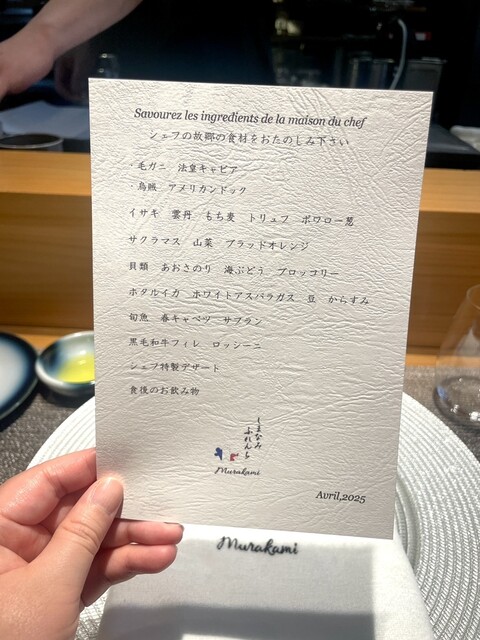 Savourez les ingredients de la maison du chef
シェフの故郷の食材をおたのしみ下さい
・毛ガニ　法皇キャビア
・烏賊　アメリカンドック
イサキ　雲丹　もち麦　トリュフ　ポワロー葱
サクラマス　山菜　ブラッドオレンジ
貝類　あおさのり　海ぶどう　ブロッコリー
ホタルイカ　ホワイトアスパラガス　豆　からすみ
旬魚　春キャベツ　サフラン
黒毛和牛フィレ　ロッシーニ
シェフ特製デザート
食後のお飲み物
しまなみ
ふれんち
Murakami
Avril,2025
Murakami